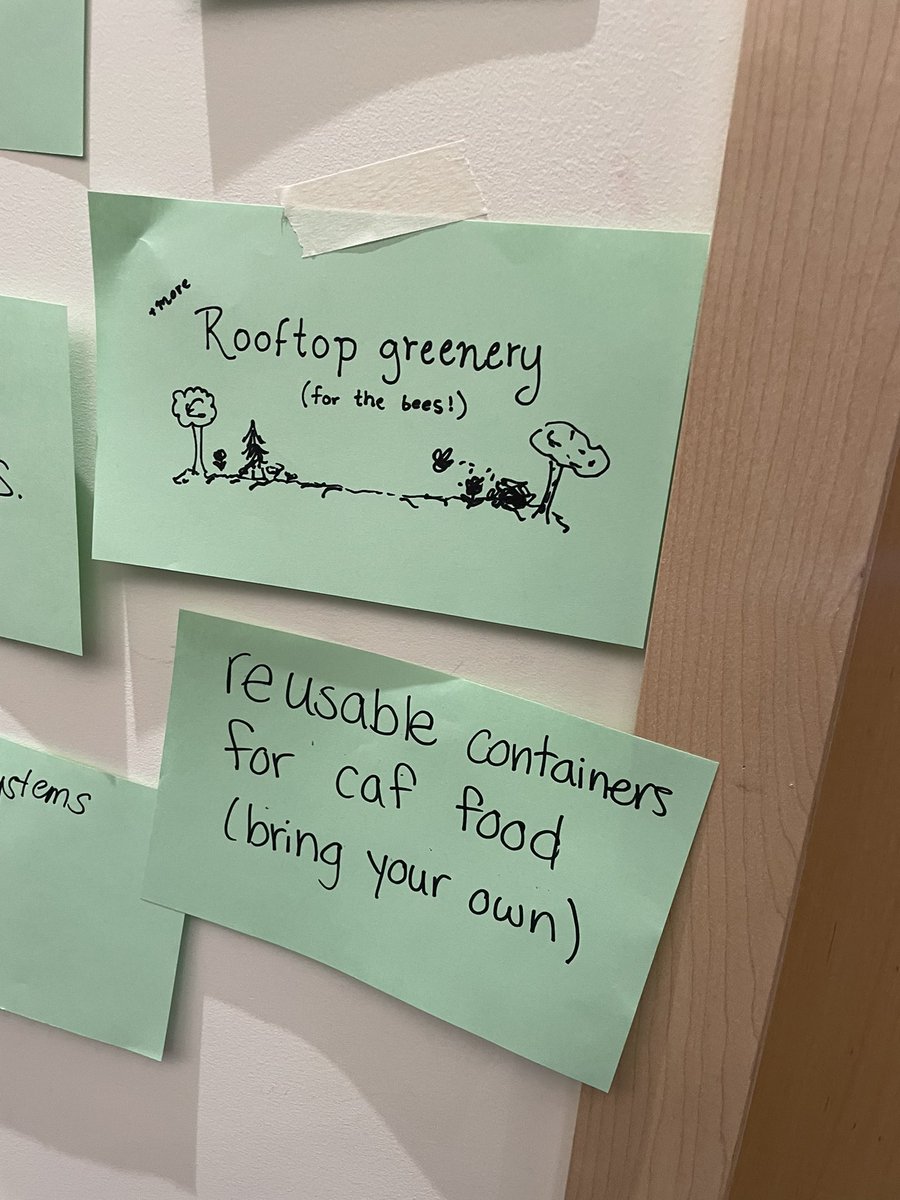 +more
Rooftop greenery
(for the bees!)
s.
reusable containers
for caf food
(bring your own)